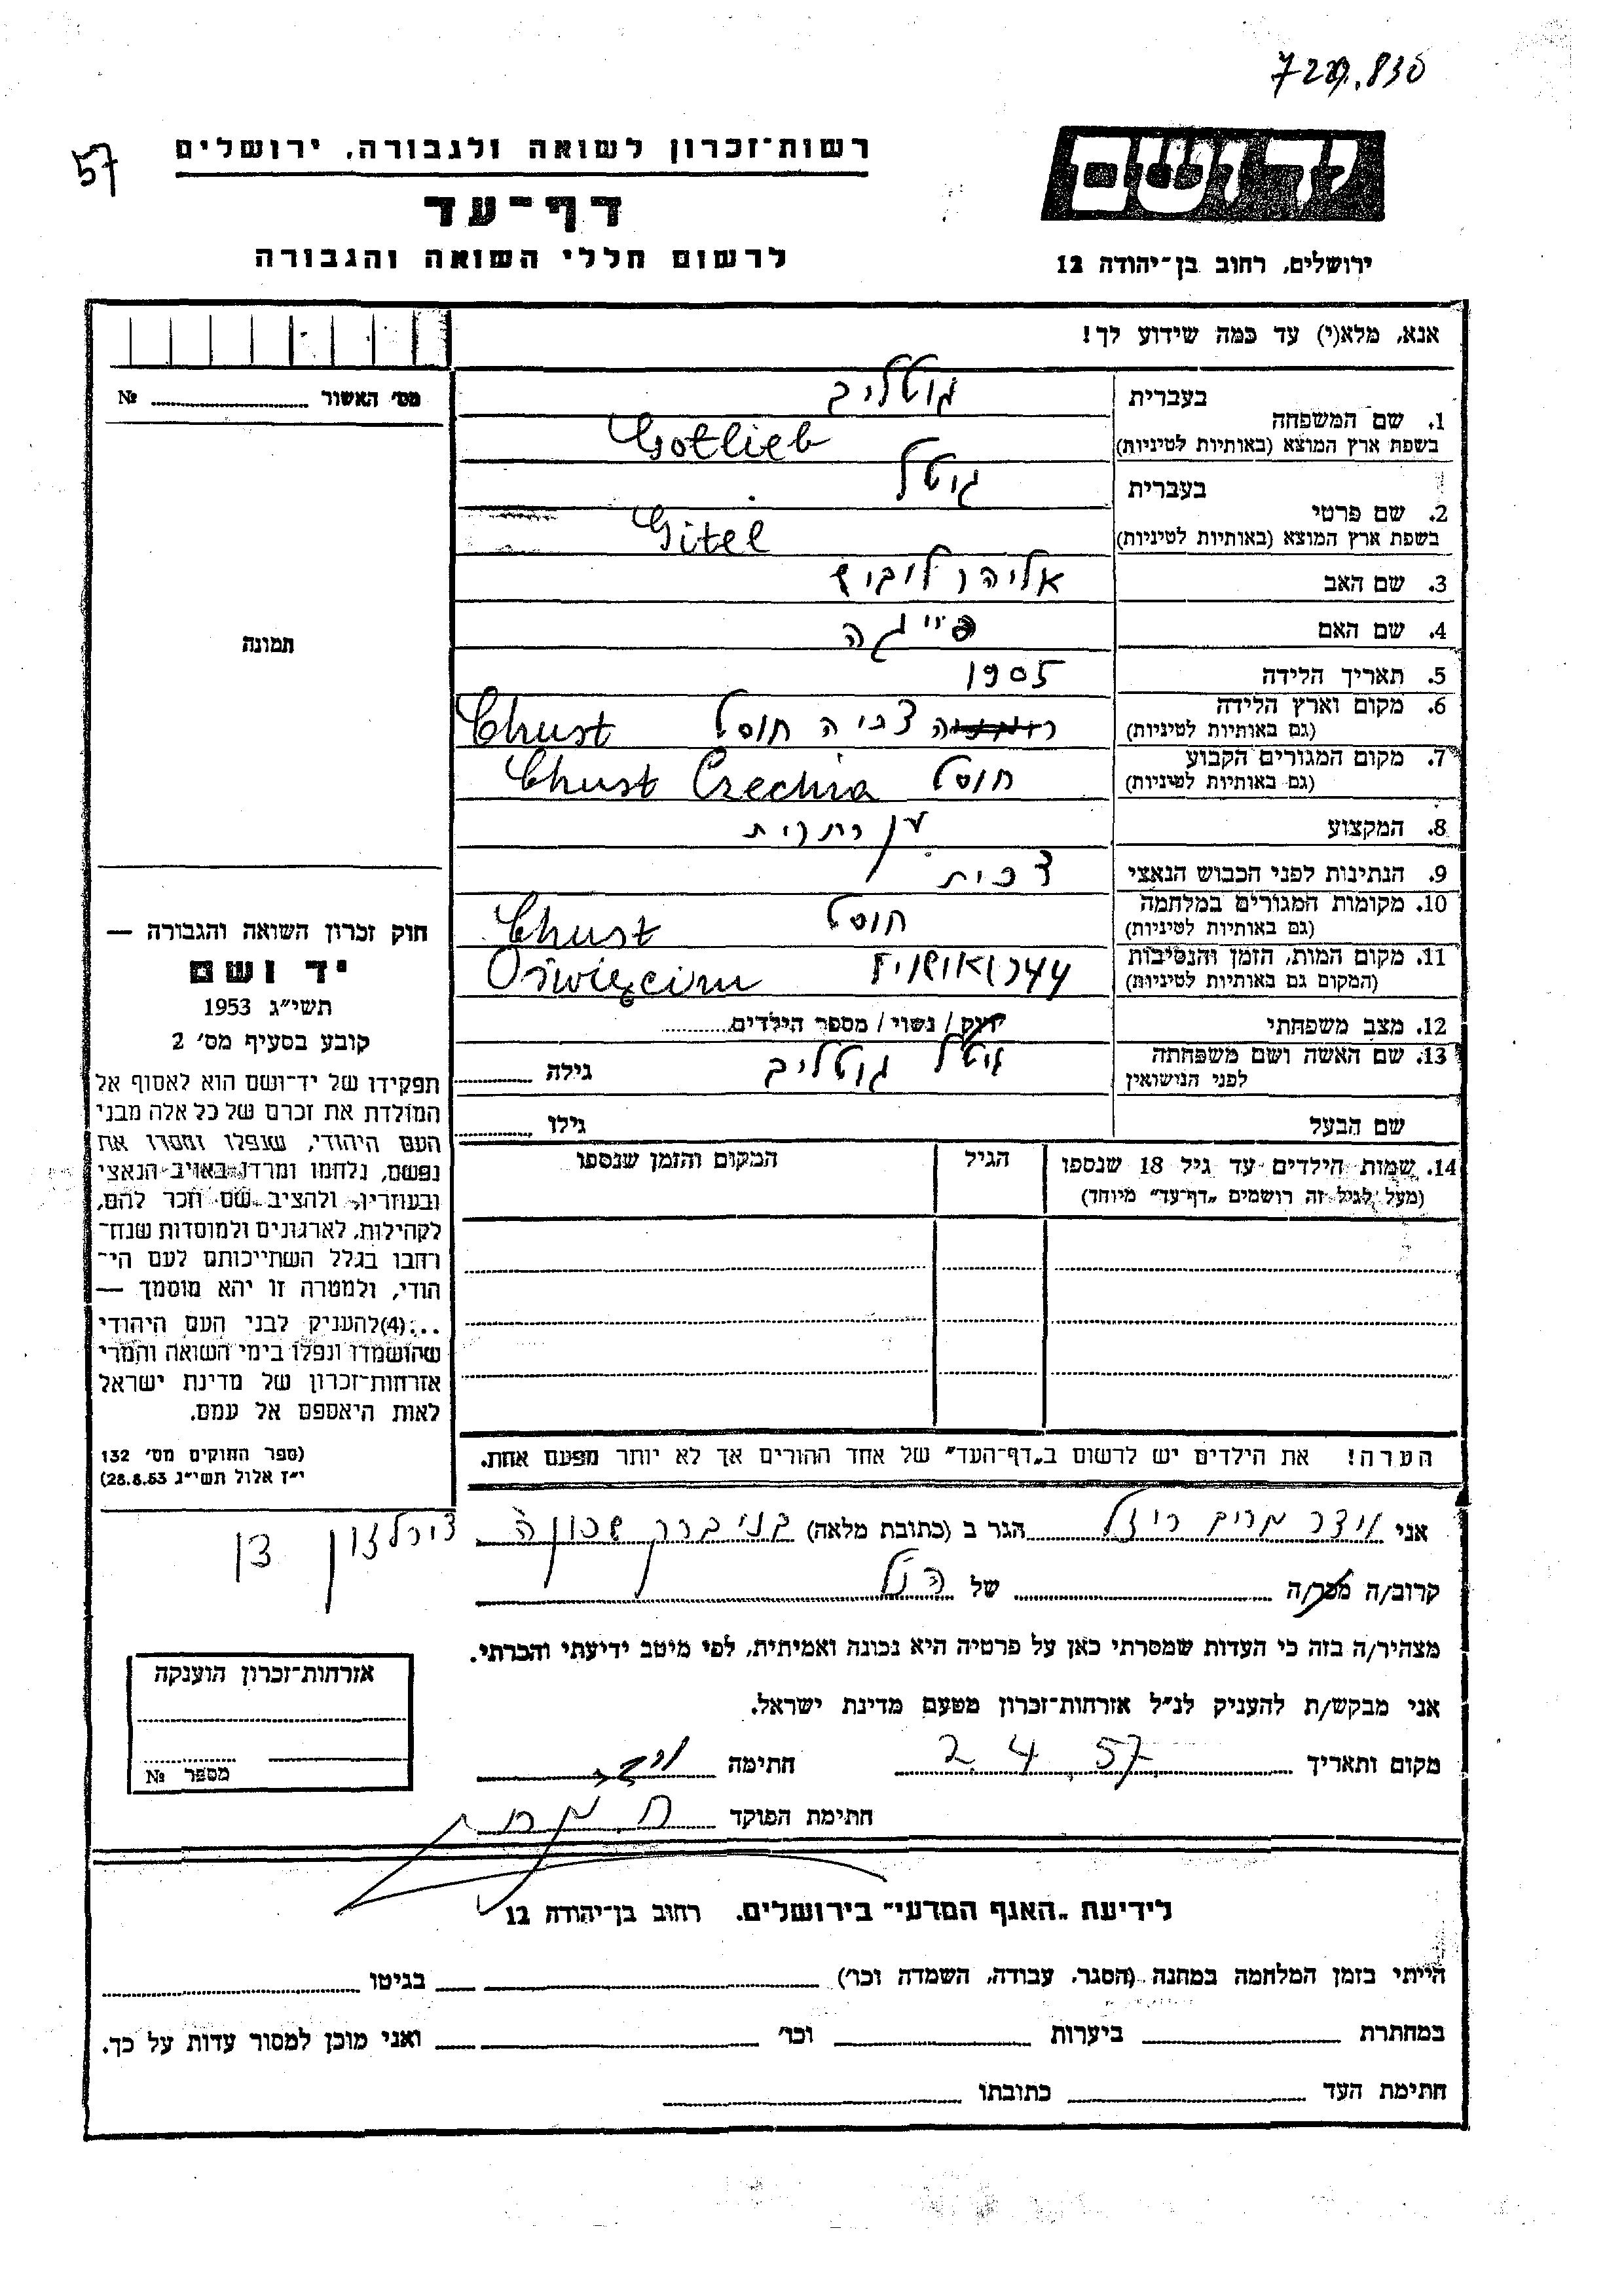 729.830
57
רשות־זכרון לשואה ולגבורה, ירושלים
דף־עד
לרשום חללי השואה והגבורה
ידושם
ירושלים, רחוב בן־יהודה 12
אנא, מלא(י) עד כמה שידוע לך!
מס׳ האשור № 
1. שם המשפחה
בעברית גוטליב
בשפת ארץ המוצא (באותיות לטיניות) Gotlieb
2. שם פרטי
בעברית גיטל
בשפת ארץ המוצא (באותיות לטיניות) Gitel
3. שם האב אליהו ליביש
4. שם האם פייגה
5. תאריך הלידה 1905
6. מקום וארץ הלידה צכיה חוסט Chust
(גם באותיות לטיניות)
7. מקום המגורים הקבוע חוסט Chust Czechia
(גם באותיות לטיניות)
8. המקצוע
9. הנתינות לפני הכבוש הנאצי צכית
10. מקומות המגורים במלחמה חוסט Chust
(גם באותיות לטיניות)
11. מקום המות, הזמן והנסיבות 1944 אושויץ Oświęcim
(המקום גם באותיות לטיניות)
12. מצב משפחתי רווק / נשוי / מספר הילדים
13. שם האשה ושם משפחתה גיטל גוטליב גילה
לפני הנישואין
שם הבעל גילו
14. שמות הילדים עד גיל 18 שנספו הגיל המקום והזמן שנספו
(מעל לגיל זה רושמים „דף־עד״ מיוחד)
הערה! את הילדים יש לרשום ב„דף־העד״ של אחד ההורים אך לא יותר מפעם אחת.
תמונה
חוק זכרון השואה והגבורה —
יד ושם
תשי״ג 1953
קובע בסעיף מס׳ 2
תפקידו של יד־ושם הוא לאסוף אל
המולדת את זכרם של כל אלה מבני
העם היהודי, שנפלו ומסרו את
נפשם, נלחמו ומרדו באויב הנאצי
ובעוזריו, ולהציב שם וזכר להם,
לקהילות, לארגונים ולמוסדות שנח־
רחבו בגלל השתייכותם לעם הי־
הודי, ולמטרה זו יהא מוסמך —
...(4) להעניק לבני העם היהודי
שהושמדו ונפלו בימי השואה והמרי
אזרחות־זכרון של מדינת ישראל
לאות היאספם אל עמם.
(ספר החוקים מס׳ 132
י״ז אלול תשי״ג 28.8.53)
אני וידר מרים רייזל הגר ב (כתובת מלאה) בני ברק שכונה
קרוב/ה מכר/ה של הנ״ל
מצהיר/ה בזה כי העדות שמסרתי כאן על פרטיה היא נכונה ואמיתית, לפי מיטב ידיעתי והכרתי.
אני מבקש/ת להעניק לנ״ל אזרחות־זכרון מטעם מדינת ישראל.
מקום ותאריך 2.4.57 חתימה
חתימת הפוקד
אזרחות־זכרון הוענקה
מספר №
לידיעת „האגף המדעי״ בירושלים. רחוב בן־יהודה 12
הייתי בזמן המלחמה במחנה (הסגר, עבודה, השמדה וכו׳) בגיטו
במחתרת ביערות וכו׳ ואני מוכן למסור עדות על כך.
חתימת העד כתובתו